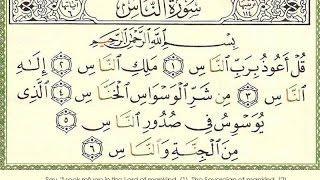 سُورَةُ النَّاسِ
بِسْمِ اللَّهِ الرَّحْمَٰنِ الرَّحِيمِ
قُلْ أَعُوذُ بِرَبِّ النَّاسِ ١ مَلِكِ النَّاسِ ٢ إِلَٰهِ
النَّاسِ ٣ مِن شَرِّ الْوَسْوَاسِ الْخَنَّاسِ ٤ الَّذِي
يُوَسْوِسُ فِي صُدُورِ النَّاسِ ٥
مِنَ الْجِنَّةِ وَالنَّاسِ ٦
Say, "I seek refuge in the Lord of mankind, (1) The Sovereign of mankind, (2)